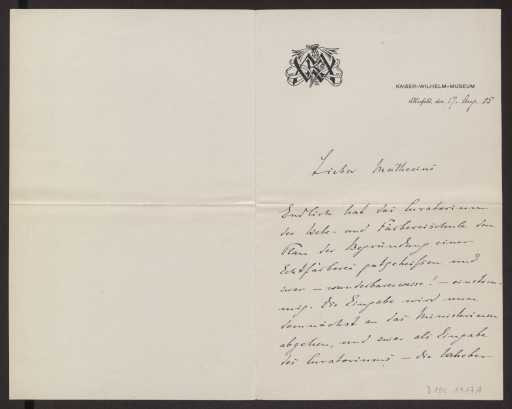 KAISER-WILHELM-MUSEUM
Krefeld, den 17. Aug. 05
Lieber Mathesius
Endlich hat das Curatorium
der Web- und Färbereischule den
Plan der Begründung einer
Echtfärberei gutgeheißen und
zwar – wunderbarerweise! – einstim-
mig. Die Eingabe wird nun
demnächst an das Ministerium
abgehen, und zwar als Eingabe
des Curatoriums – die Urheber-